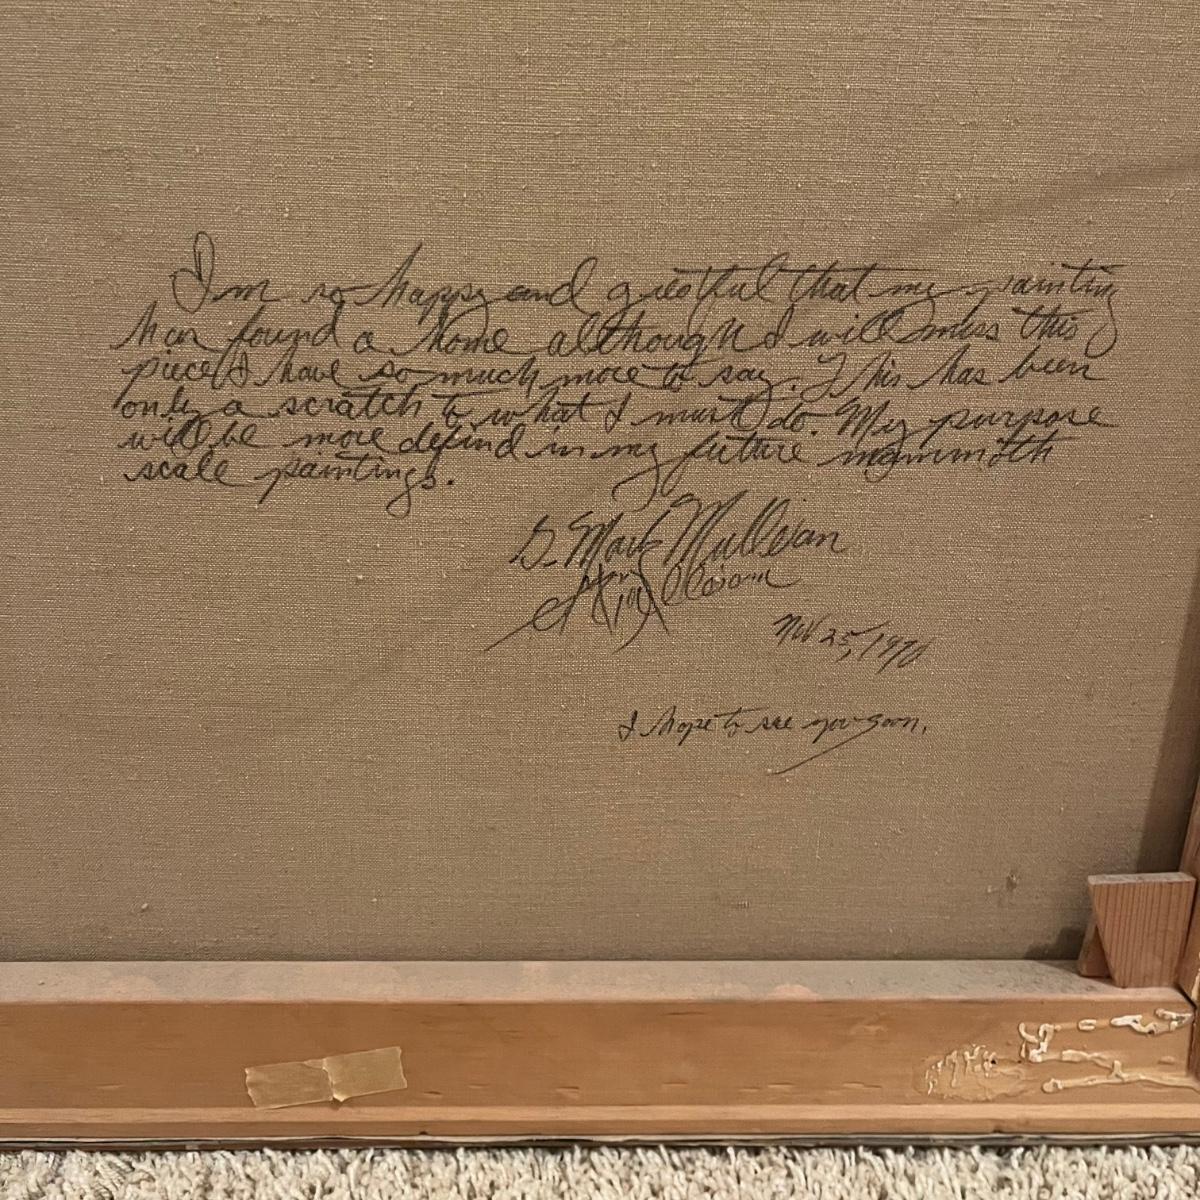 I'm so happy and grateful that my painting
has found a home although I will miss this
piece I have so much more to say. This has been
only a scratch to what I must do. My purpose
will be more defind in my future mammoth
scale paintings.
G. Mark Mullivan
Nov 25, 1970
I hope to see you soon.